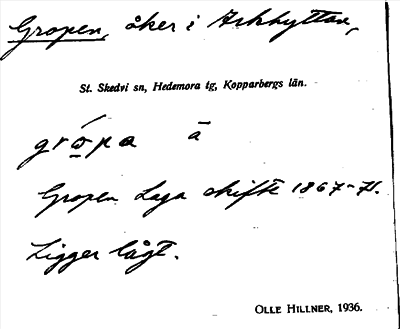 Gropen, åker i Askhyttan,
St. Skedvi sn, Hedemora tg, Kopparbergs län.
grópa ā
Gropen Laga skifte 1867-71.
Ligger lågt.
OLLE HILLNER, 1936.